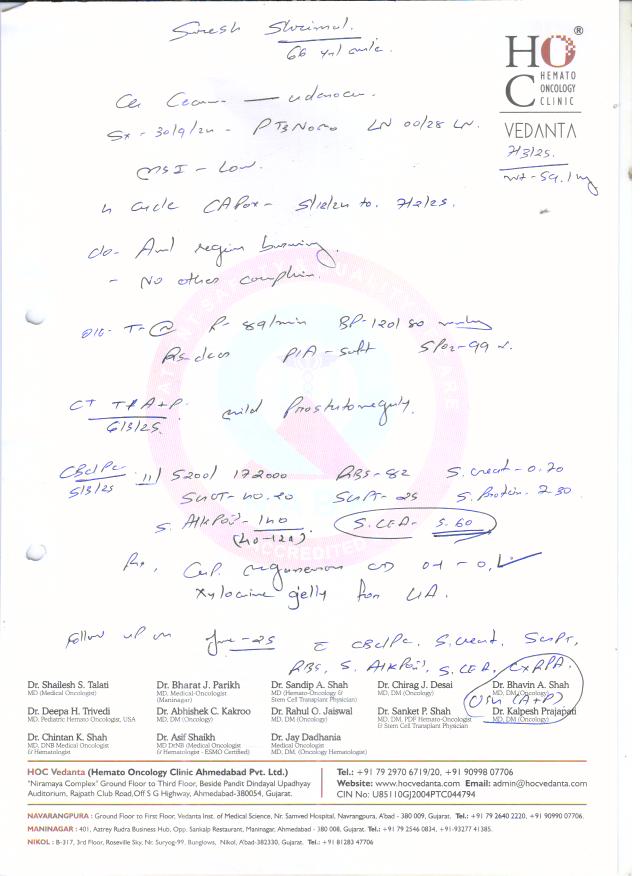 Suresh Shrimal.
66 yrs/male.
HOC®
HEMATO
ONCOLOGY
CLINIC
VEDANTA
7/3/25.
wt - 59.1 kg
Ca Cecum — adenoca.
Sx - 30/9/24 - PT3N0M0 LN 00/28 LN.
MSI - Low.
4 cycle CAPox - 5/12/24 to. 7/2/25.
c/o - Anal region burning.
- No other complain.
O/E - T- P- 89/min BP - 120/80
Rs - clear P/A - soft SPO2 - 99
CT T+A+P.
6/3/25.
mild Prostatomegaly.
CBC/PC
5/3/25
11/ 5200/ 172000 RBS - 82 S. creat - 0.70
SGOT - 40.20 SGPT - 25 S. Protein - 7.30
S. AlkPO4 - 140
(40-129)
S. CEA - 5.60
Rx, Cap.
Xylocaine gelly for LA.
Follow up on June - 25 c CBC/PC, S. creat, SGPT,
RBS, S. AlkPO4, S. CEA, CXRPA.
USG (A+P)
Dr. Shailesh S. Talati
MD (Medical Oncologist)
Dr. Bharat J. Parikh
MD, Medical-Oncologist
(Maninagar)
Dr. Sandip A. Shah
MD (Hemato-Oncology &
Stem Cell Transplant Physician)
Dr. Chirag J. Desai
MD, DM (Oncology)
Dr. Bhavin A. Shah
MD, DM (Oncology)
Dr. Deepa H. Trivedi
MD. Pediatric Hemato Oncologist, USA
Dr. Abhishek C. Kakroo
MD, DM (Oncology)
Dr. Rahul O. Jaiswal
MD, DM (Oncology)
Dr. Sanket P. Shah
MD, DM, PDF Hemato-Oncologist
& Stem Cell Transplant Physician
Dr. Kalpesh Prajapati
MD, DM (Oncology)
Dr. Chintan K. Shah
MD, DNB Medical Oncologist
& Hematologist
Dr. Asif Shaikh
MD DrNB (Medical Oncologist
& Hematologist - ESMO Certified)
Dr. Jay Dadhania
Medical Oncologist
MD, DM, (Oncology Hematologist)
HOC Vedanta (Hemato Oncology Clinic Ahmedabad Pvt. Ltd.)
"Niramaya Complex" Ground Floor to Third Floor, Beside Pandit Dindayal Upadhyay
Auditorium, Rajpath Club Road,Off S G Highway, Ahmedabad-380054, Gujarat.
Tel.: +91 79 2970 6719/20, +91 90998 07706
Website: www.hocvedanta.com Email: admin@hocvedanta.com
CIN No: U85110GJ2004PTC044794
NAVARANGPURA : Ground Floor to First Floor, Vedanta Inst. of Medical Science, Nr. Samved Hospital, Navrangpura, A'bad - 380 009, Gujarat. Tel.: +91 79 2640 2220, +91 90990 07706.
MANINAGAR : 401, Aatrey Rudra Business Hub, Opp. Sankalp Restaurant, Maninagar, Ahmedabad - 380 008, Gujarat. Tel.: +91 79 2546 0834, +91-93277 41385.
NIKOL : B-317, 3rd Floor, Roseville Sky, Nr. Suryog-99. Bunglows, Nikol, A'bad-382330, Gujarat. Tel.: +91 81283 47706